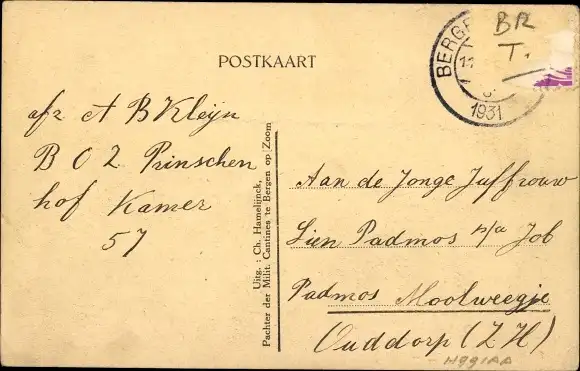 POSTKAART
BERGE
BR
T.
11
1931
afz A B Kleijn
B O 2 Prinschen
hof Kamer
57
Uitg. : Ch. Hamelijnck,
Pachter der Milit. Cantines te Bergen op Zoom
Aan de Jonge Juffrouw
Lien Padmos p/a Job
Padmos Moolweegje
Ouddorp (Z H)